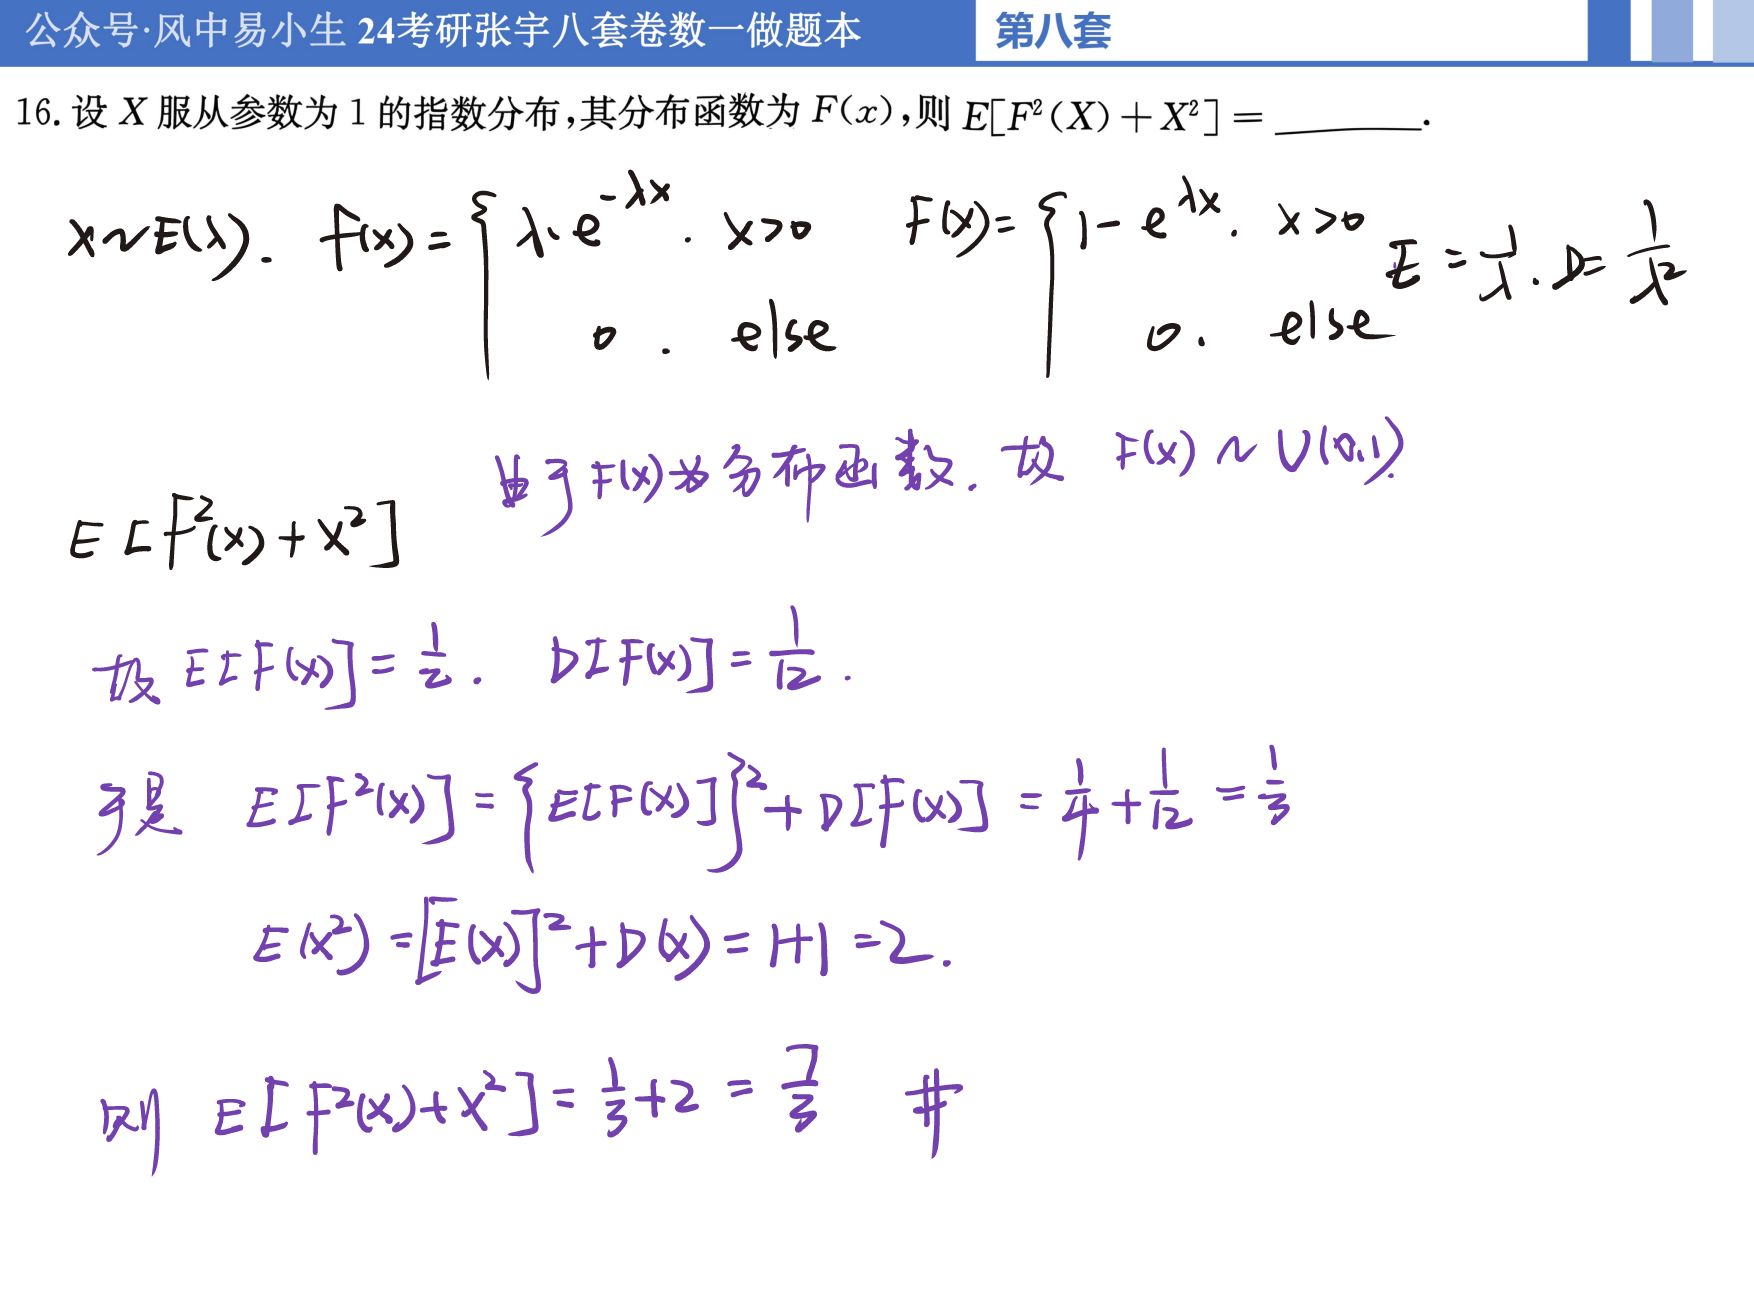 公众号·风中易小生 24考研张宇八套卷数一做题本 第八套
16. 设 X 服从参数为 1 的指数分布,其分布函数为 F(x),则 E[F²(X)+X²]=______.
X~E(λ). f(x)={λ·e^{-λx}. x>0 F(x)={1-e^{λx}. x>0 E=1/λ. D=1/λ²
0. else 0. else
由于F(x)为分布函数. 故 F(x)~U(0,1).
E[F²(x)+X²]
故 E[F(x)]=1/2. D[F(x)]=1/12.
于是 E[F²(x)]={E[F(x)]}²+D[F(x)]=1/4+1/12=1/3
E(x²)=[E(x)]²+D(x)=1+1=2.
则 E[F²(x)+X²]=1/3+2=7/3 #